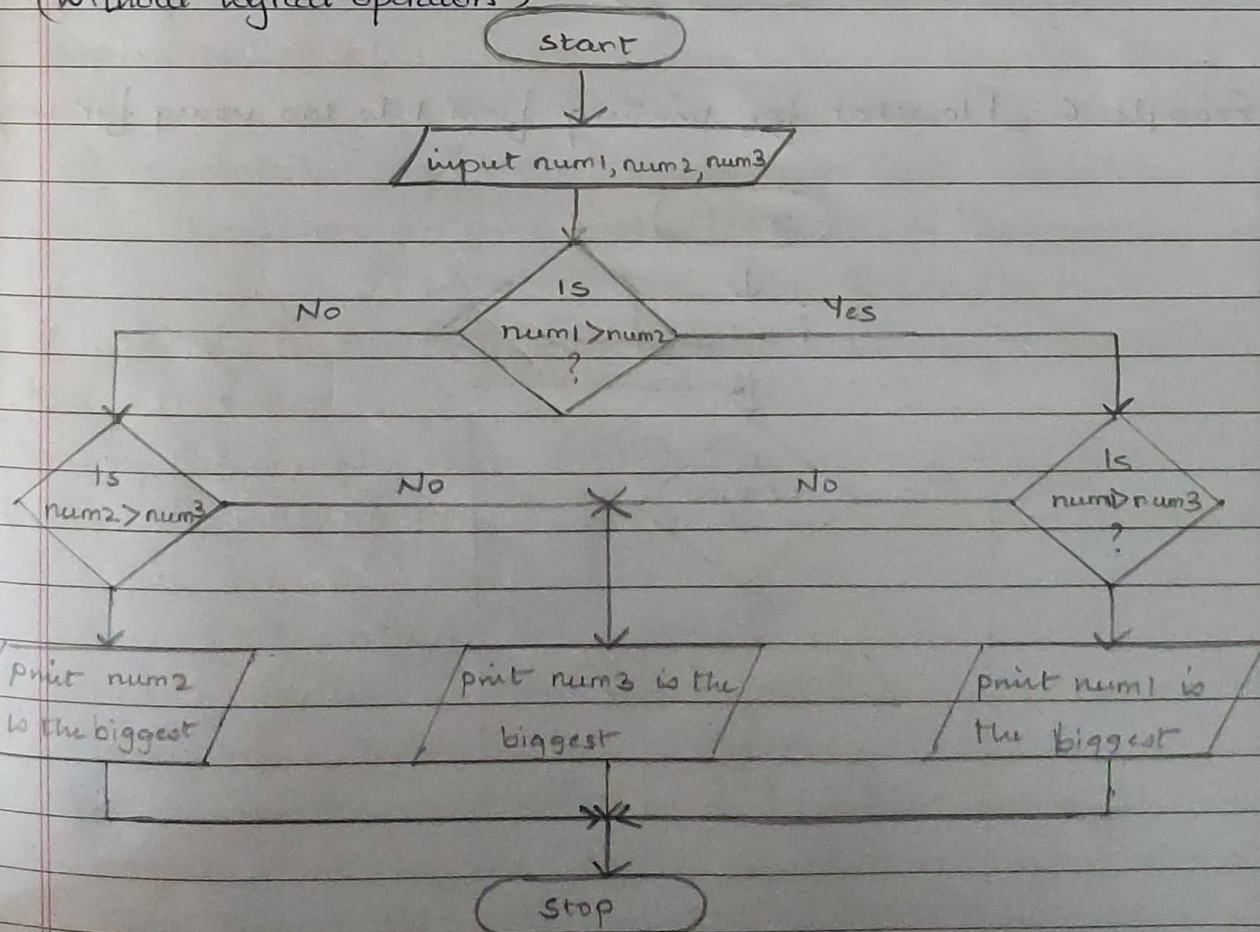 (without logical operators)
start
input num1, num2, num3
Is
num1>num2
?
No
Yes
Is
num2>num3
No
No
Is
num1>num3
?
print num2
is the biggest
print num3 is the
biggest
print num1 is
the biggest
stop